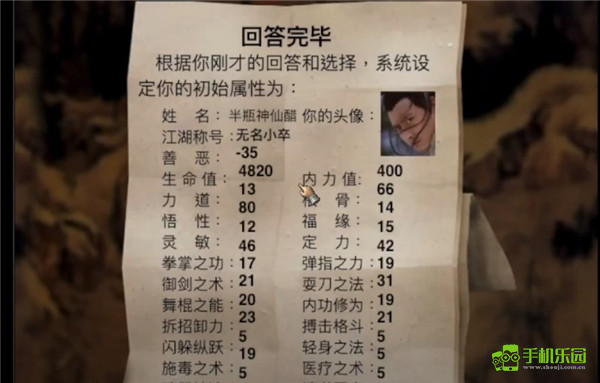 回答完毕
根据你刚才的回答和选择，系统设
定你的初始属性为：
姓 名：半瓶神仙醋 你的头像：
江湖称号：无名小卒
善 恶： -35
生命值： 4820 内力值: 400
力 道： 13 骨： 66
悟 性： 80 福 缘： 14
灵 敏： 12 定 力： 15
拳掌之功： 46 弹指之力： 42
御剑之术： 17 耍刀之法： 19
舞棍之能： 21 内功修为： 31
拆招卸力： 20 搏击格斗： 19
闪躲纵跃： 23 轻身之法： 21
施毒之术： 5 医疗之术： 5
19 5
5 5
手机乐园
www.shouji.com.cn